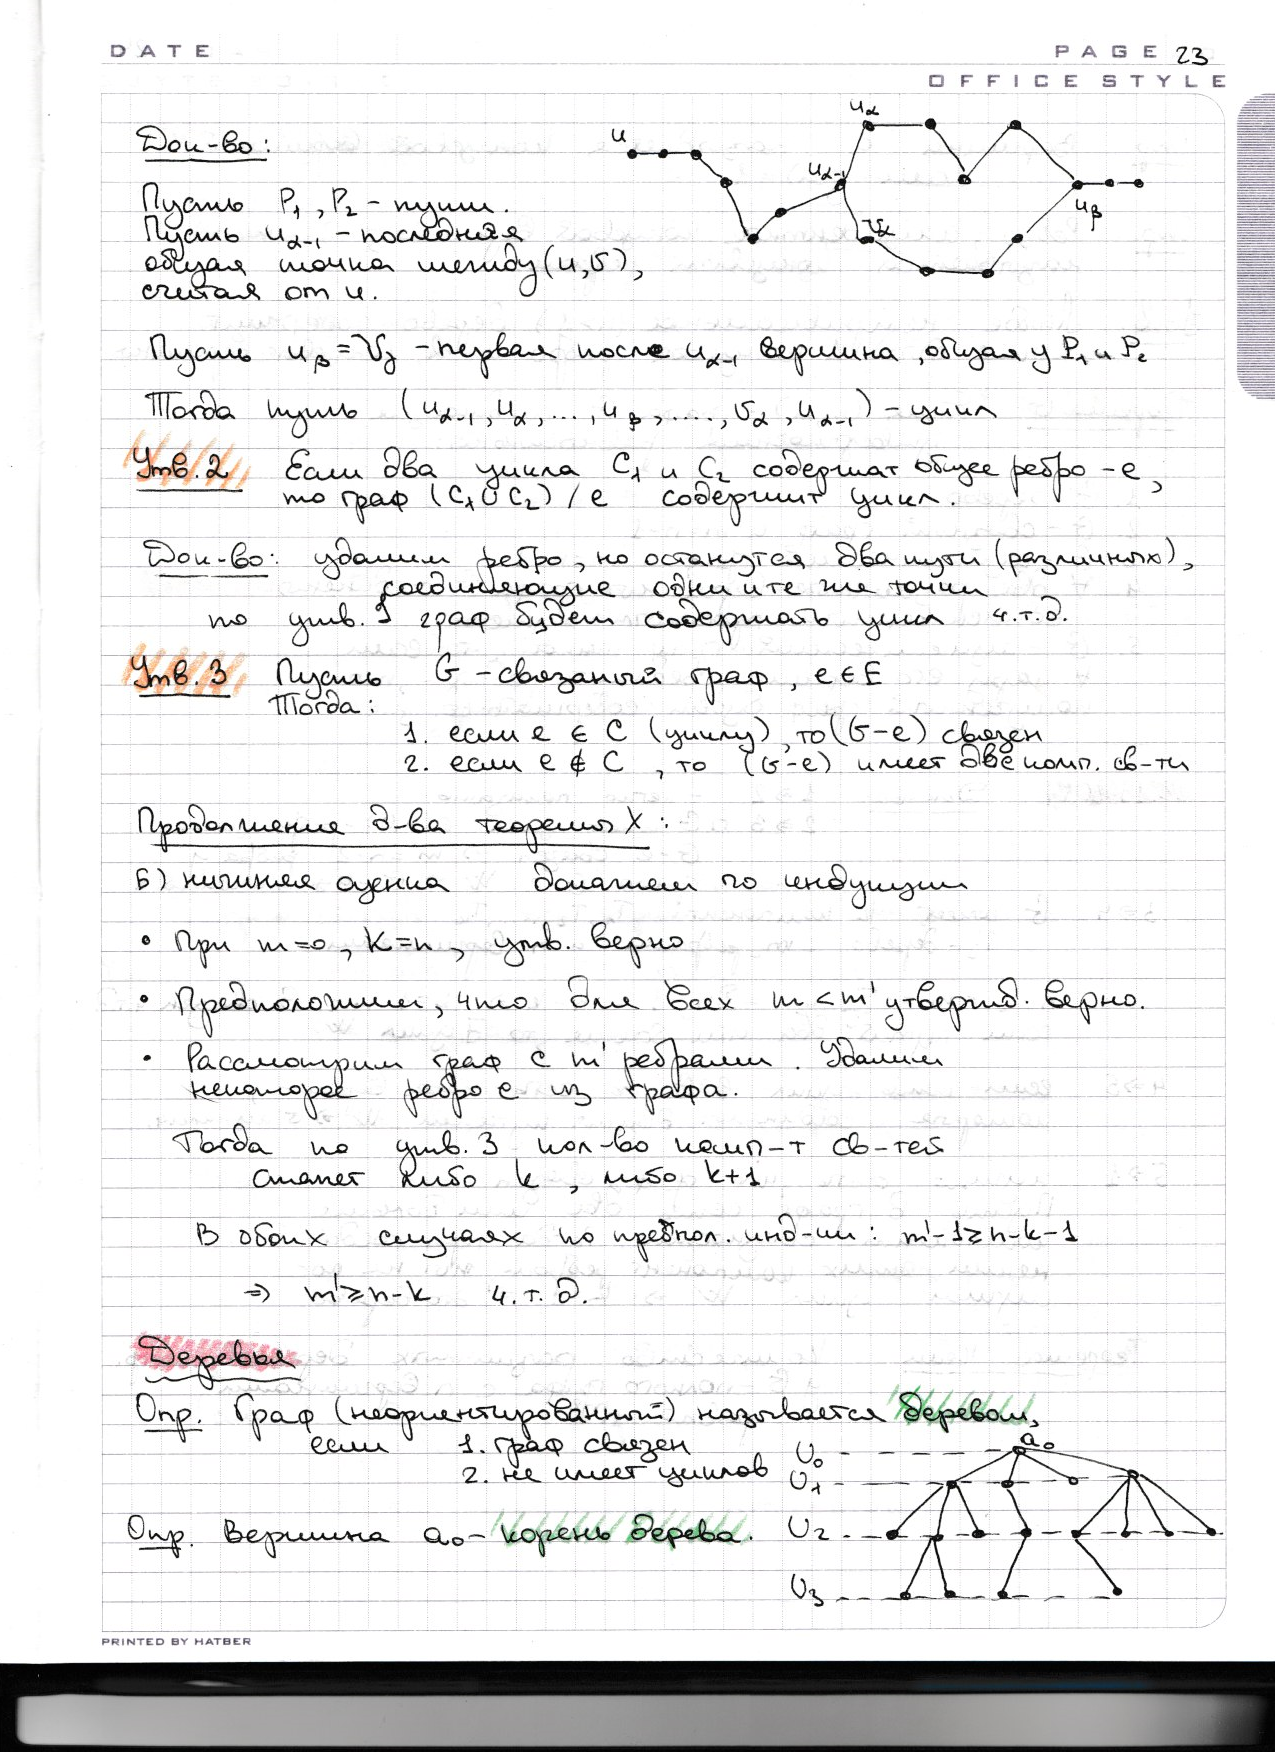 DATE
PAGE 23
OFFICE STYLE
Док-во:
u
uα
uα-1
vα
uβ
Пусть P1, P2 - пути.
Пусть uα-1 - последняя
общая точка между (u,v),
считая от u.
Пусть uβ = vγ - первая после uα-1 вершина, общая у P1 и P2
Тогда путь (uα-1, uα, ..., uβ, ...., vα, uα-1) - цикл
Утв. 2 Если два цикла C1 и C2 содержат общее ребро - e,
то граф (C1 ∪ C2) / e содержит цикл.
Док-во: удалим ребро, но останутся два пути (различных),
соединяющие одни и те же точки
по утв. 1 граф будет содержать цикл ч.т.д.
Утв. 3 Пусть G - связаный граф, e ∈ E
Тогда:
1. если e ∈ C (циклу), то (G-e) связен
2. если e ∉ C, то (G-e) имеет две комп. св-ти
Продолжение д-ва теоремы X:
Б) нижняя оценка докажем по индукции
• При m=0, k=n, утв. верно
• Предположим, что для всех m < m' утвержд. верно.
• Рассмотрим граф с m' ребрами. Удалим
некоторое ребро e из графа.
Тогда по утв. 3 кол-во комп-т св-тей
станет либо k, либо k+1
В обоих случаях по предпол. инд-ии: m'-1 ≥ n-k-1
⇒ m' ≥ n-k ч.т.д.
Деревья
Опр. Граф (неориентированный) называется деревом,
если 1. граф связен
2. не имеет циклов
Опр. Вершина a0 - корень дерева.
a0
U0
U1
U2
U3
PRINTED BY HATBER